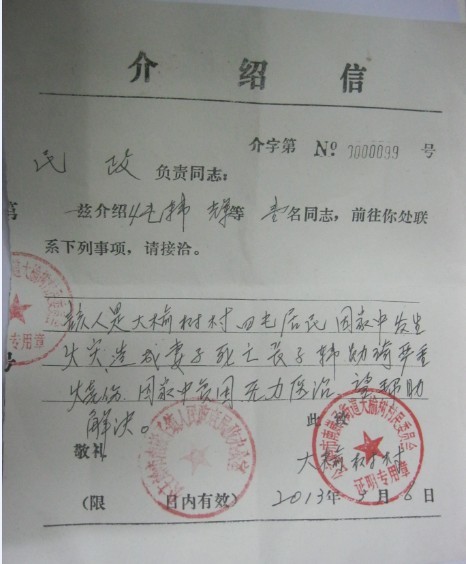 介绍信
介字第 № 0000099 号
民政 负责同志：
兹介绍 等壹名同志，前往你处联
系下列事项，请接洽。
该人是大榆树村四屯居民因家中发生
火灾造成妻子死亡长子韩 严重
烧伤，因家中贫困无力医治，请帮助
解决。
此致
敬礼
大榆树村
（限 日内有效） 2013年 月 日
证明专用章
专用章